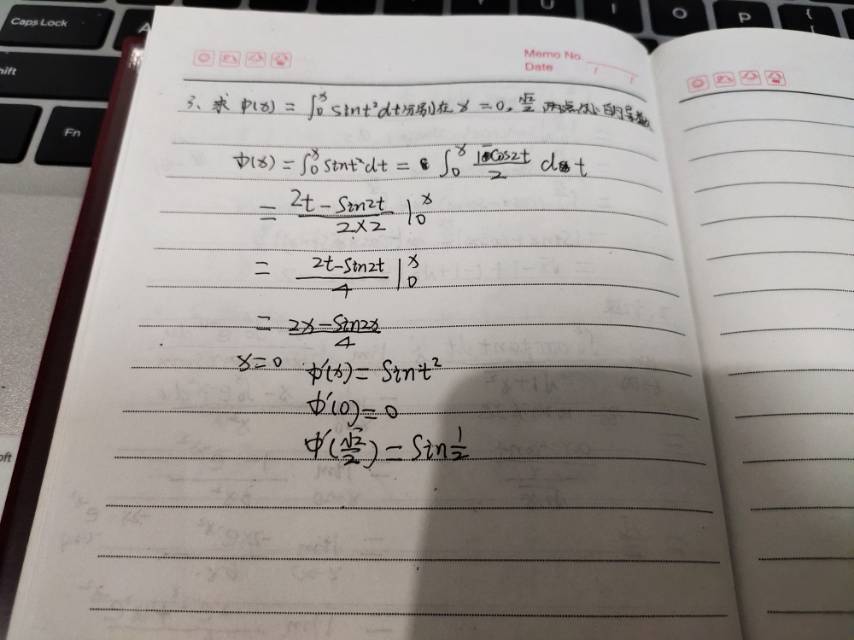 Caps Lock
Shift
Fn
O
P
Memo No.
Date / /
3、求 Φ(x) = ∫₀ˣ sint²dt分别在 x = 0, √2/2 两点处的导数
Φ(x) = ∫₀ˣ sint²dt = ∫₀ˣ (1-cos2t)/2 dt
= (2t - sin2t)/(2×2) |₀ˣ
= (2t-sin2t)/4 |₀ˣ
= (2x-sin2x)/4
x=0 Φ'(x) = sint²
Φ'(0) = 0
Φ'(√2/2) = sin 1/2